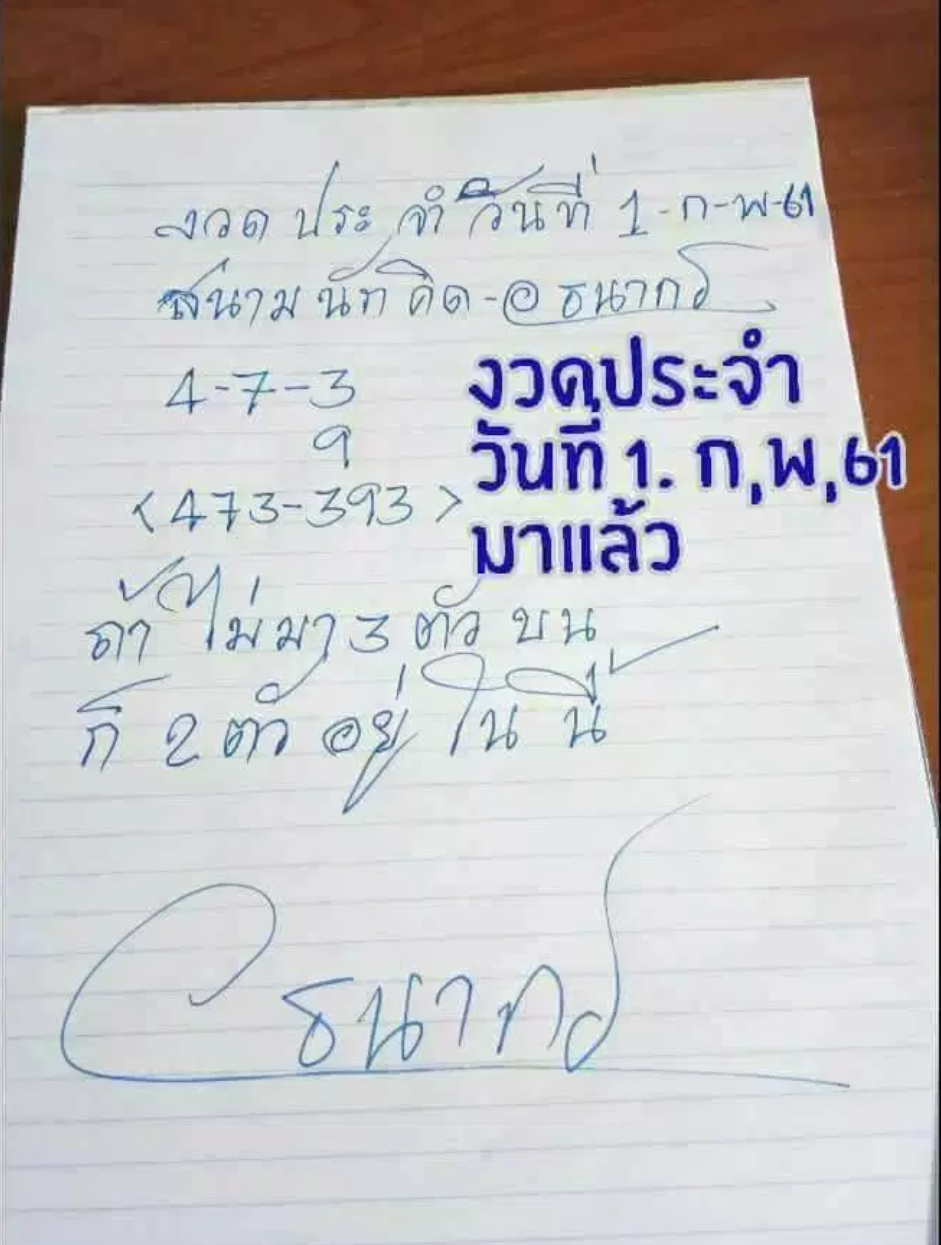 งวด ประ จำ วันที่ 1-ก-พ-61
สนาม นัก คิด-อ ธนากร
4-7-3
9
<473-393>
งวดประจำ
วันที่ 1. ก,พ,61
มาแล้ว
ถ้า ไม่ มา 3 ตัว บน
ก็ 2 ตัว อยู่ ใน นี้
ธนากร